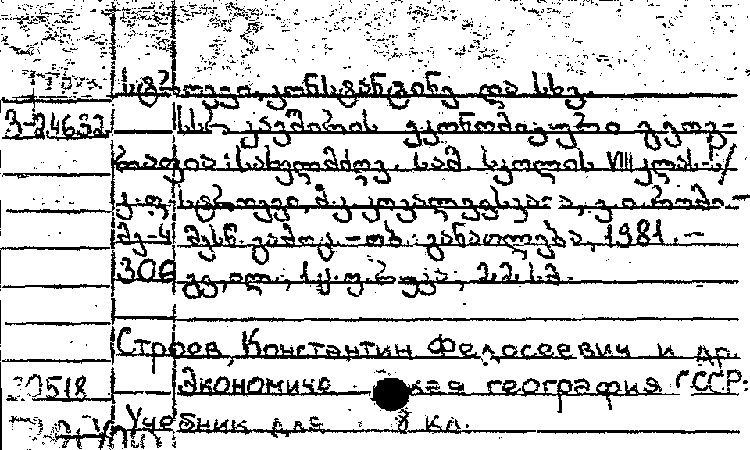 სტროევი, კონსტანტინე და სხვ.
3-24632 სსრ კავშირის ეკონომიკური გეოგ-
რაფია: სახელმძღვ. საშ. სკოლის VIII კლას./
კ. ფ. სტროევი,
მე-4 შესწ. გამოც. – თბ.: განათლება, 1981. –
306 გვ., ილ., 1 ც. ფ. რუკა; 22 სმ.
Строев, Константин Федосеевич и др.
30518 Экономиче кая география СССР:
Учебник для 8 кл.